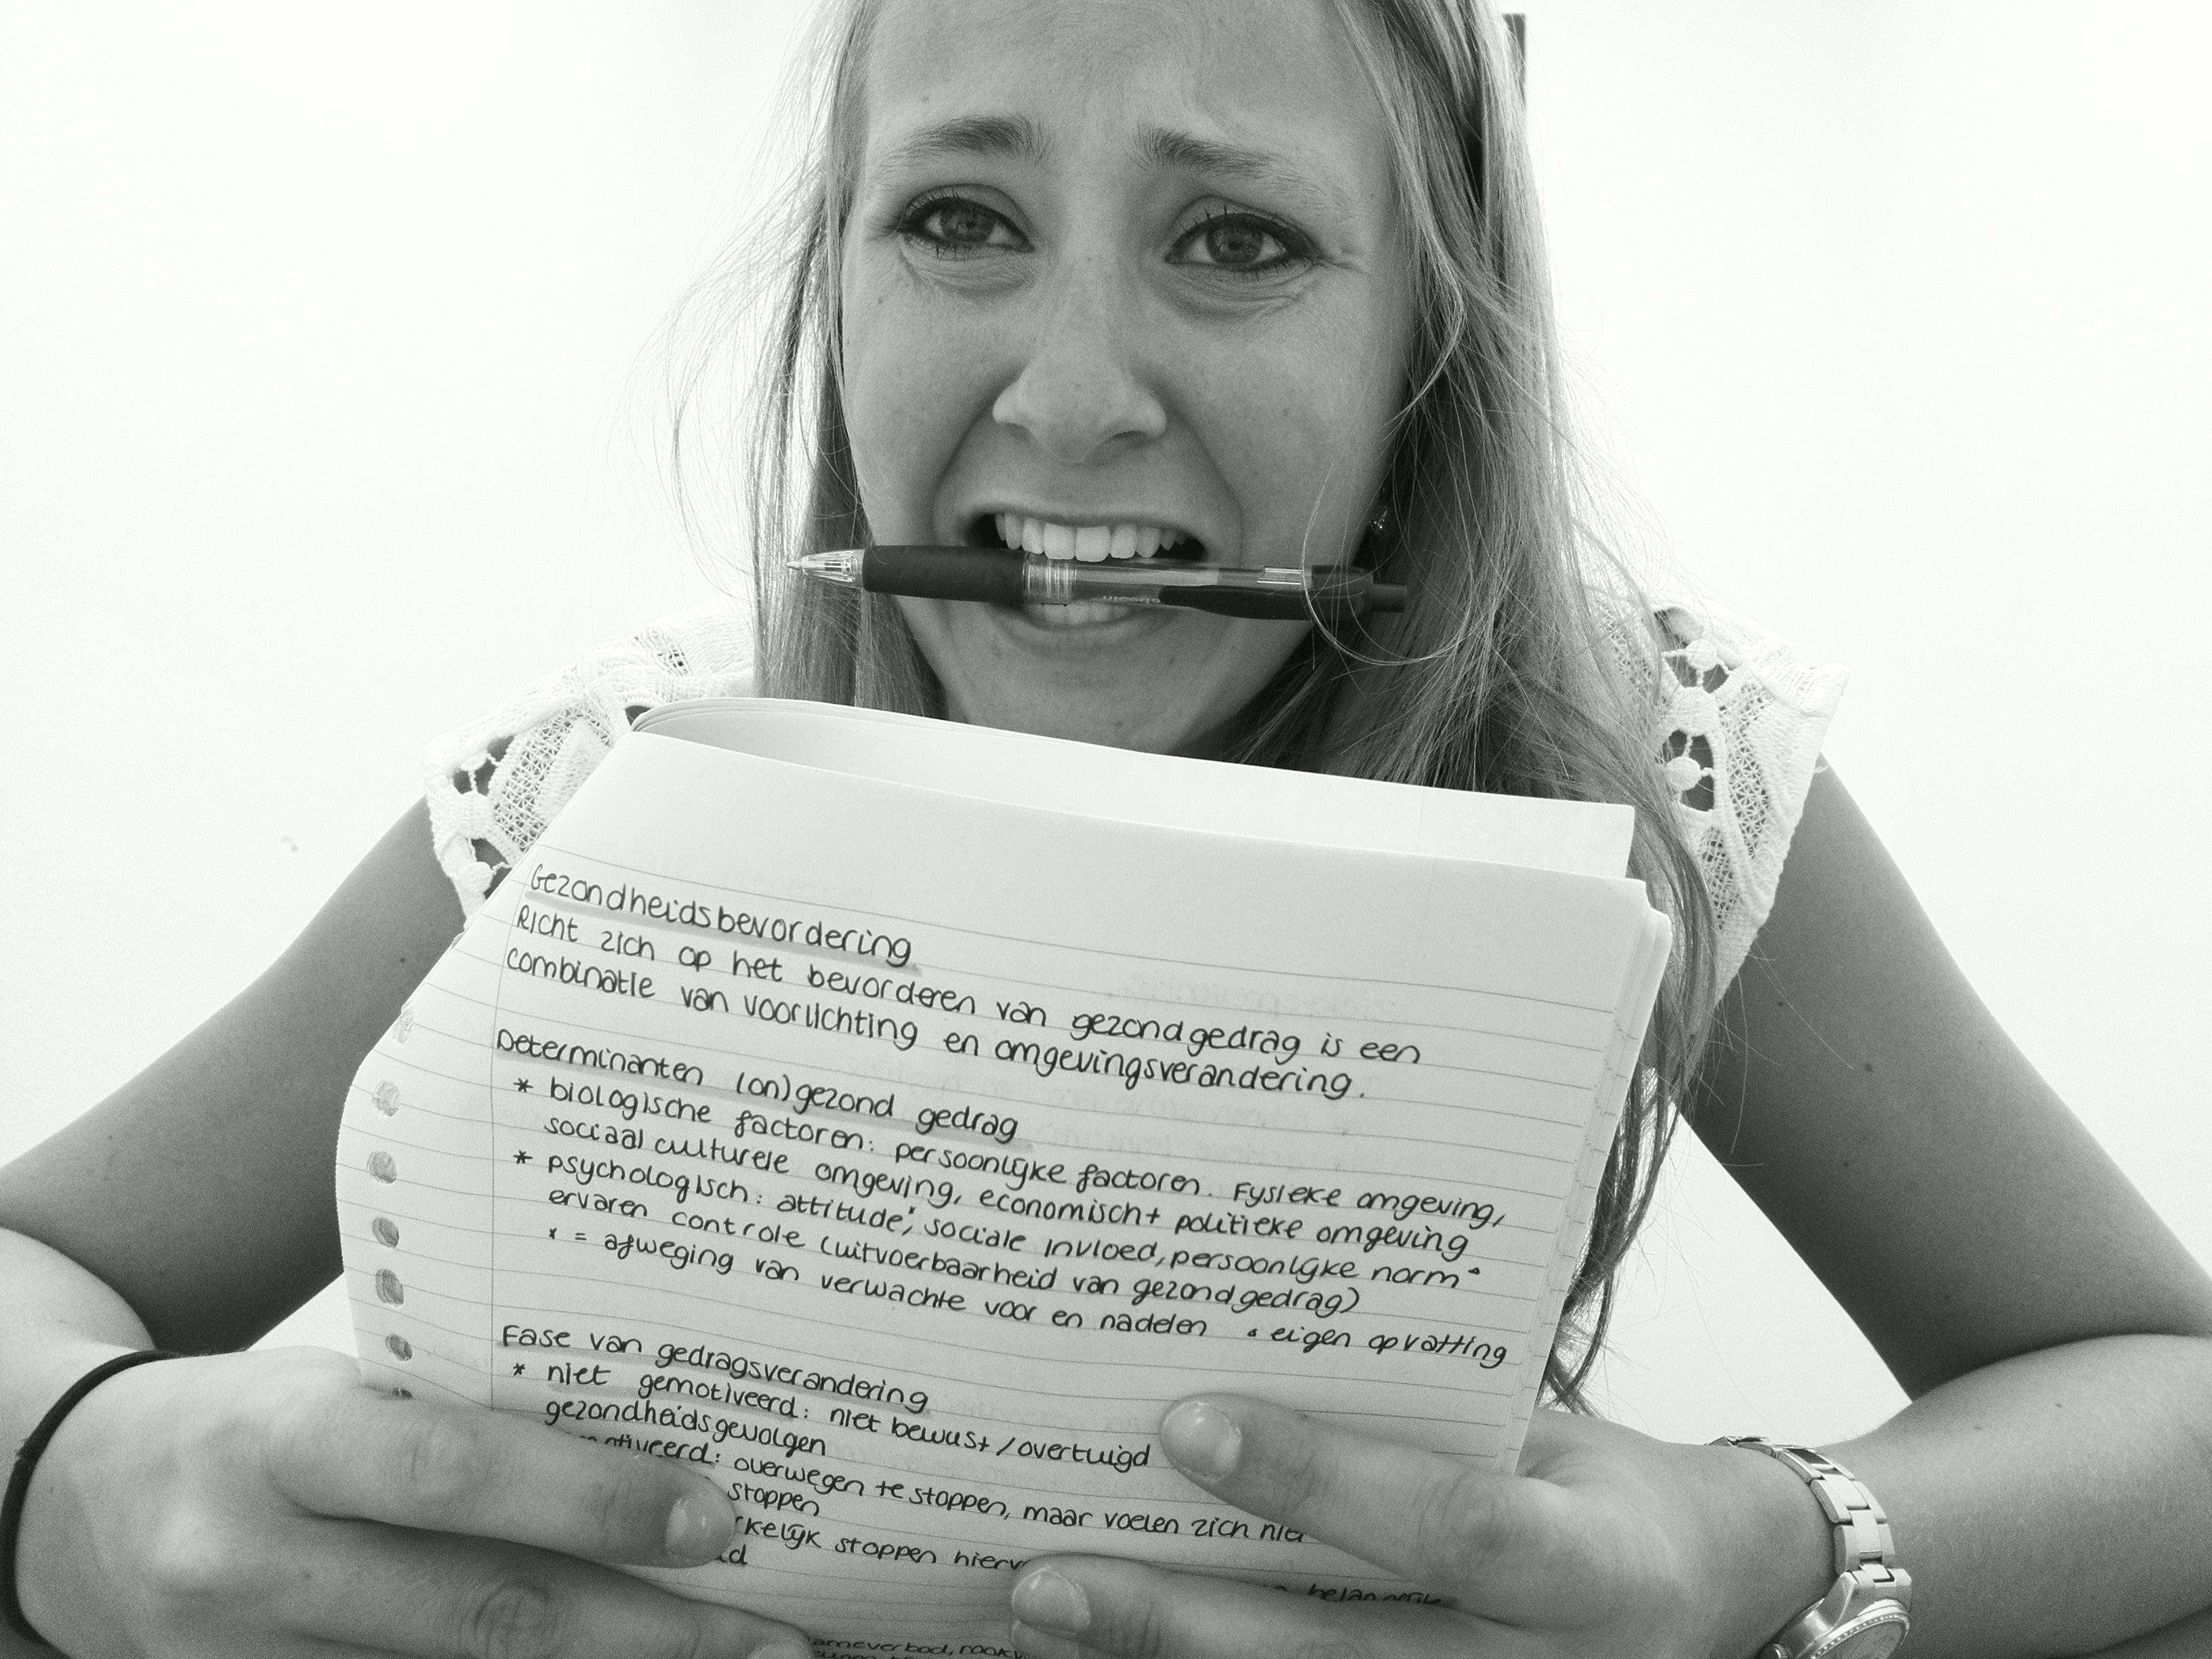 Gezondheidsbevordering
Richt zich op het bevorderen van gezond gedrag is een
combinatie van voorlichting en omgevingsverandering.
Determinanten (on)gezond gedrag
* biologische factoren: persoonlijke factoren. Fysieke omgeving,
sociaal culturele omgeving, economisch + politieke omgeving
* psychologisch: attitude*, sociale invloed, persoonlijke norm •
ervaren controle (uitvoerbaarheid van gezond gedrag)
* = afweging van verwachte voor en nadelen • eigen opvatting
Fase van gedragsverandering
* niet gemotiveerd: niet bewust / overtuigd
gezondheidsgevolgen
overwegen te stoppen, maar voelen zich
stoppen
stoppen